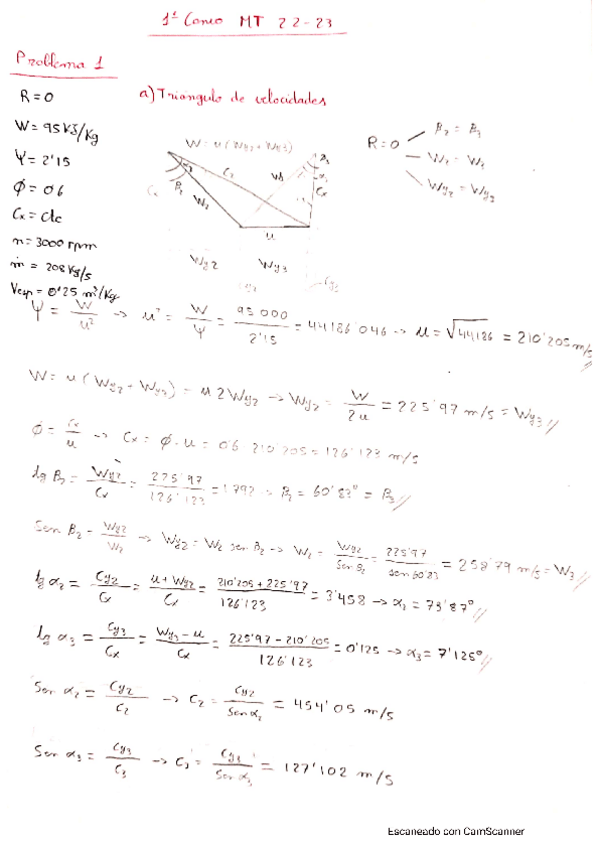 1º Curso MT 22-23
Problema 1
R=0
W=95 kJ/kg
Ψ=2'15
Φ=0'6
Cx=cte
n=3000 rpm
ṁ = 208 kg/s
Vesp = 0'25 m³/kg
a) Triangulo de velocidades
W=u(Wy2+Wy3)
C2
W2
β2
α2
Cx
W3
β3
α3
Cx
u
Wy2 Wy3
Cy2 Cy3
R=0
β2 = β3
W2 = W3
Wy2 = Wy3
Ψ = W/u² → u² = W/Ψ = 95000/2'15 = 44186'046 → u = √44186 = 210'205 m/s //
W = u(Wy2 + Wy3) = u 2Wy2 → Wy2 = W/2u = 225'97 m/s = Wy3 //
Φ = Cx/u → Cx = Φ·u = 0'6 210'205 = 126'123 m/s
tg β2 = Wy2/Cx = 225'97/126'123 = 1'792 → β2 = 60'83° = β3 //
Sen β2 = Wy2/W2 → Wy2 = W2 sen β2 → W2 = Wy2/sen β2 = 225'97/sen 60'83 = 258'79 m/s = W3 //
tg α2 = Cy2/Cx = u+Wy2/Cx = 210'205+225'97/126'123 = 3'458 → α2 = 73'87° //
tg α3 = Cy3/Cx = Wy3-u/Cx = 225'97-210'205/126'123 = 0'125 → α3 = 7'125° //
Sen α2 = Cy2/C2 → C2 = Cy2/Sen α2 = 454'05 m/s
Sen α3 = Cy3/C3 → C3 = Cy3/Sen α3 = 127'102 m/s
Escaneado con CamScanner